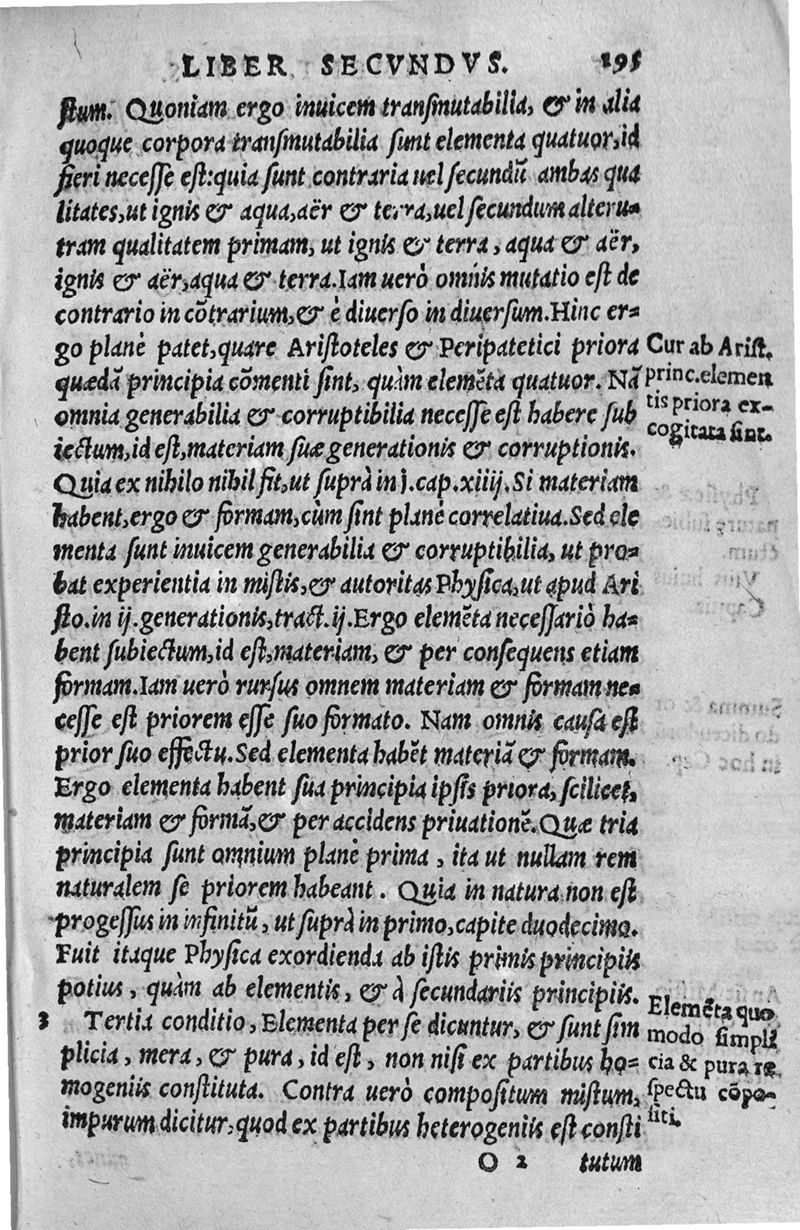 LIBER SECVNDVS. 195
stum. Quoniam ergo inuicem transmutabilia, & in alia
quoque corpora transmutabilia sunt elementa quatuor, id
fieri necesse est: quia sunt contraria uel secundũ ambas qua
litates, ut ignis & aqua, aër & terra, uel secundum alteru-
tram qualitatem primam, ut ignis & terra, aqua & aër,
ignis & aër, aqua & terra. Iam uerò omnis mutatio est de
contrario in cõtrarium, & è diuerso in diuersum. Hinc er-
go planè patet, quare Aristoteles & Peripatetici priora
quædã principia cõmenti sint, quàm elemẽta quatuor. Nã
omnia generabilia & corruptibilia necesse est habere sub
iectum, id est, materiam suæ generationis & corruptionis.
Quia ex nihilo nihil fit, ut suprà in j. cap. xiiij. Si materiam
habent, ergo & formam, cùm sint planè correlatiua. Sed ele
menta sunt inuicem generabilia & corruptibilia, ut pro-
bat experientia in mistis, & autoritas Physica, ut apud Ari
sto. in ij. generationis, tract. ij. Ergo elemẽta necessariò ha-
bent subiectum, id est, materiam, & per consequens etiam
formam. Iam uerò rursus omnem materiam & formam ne-
cesse est priorem esse suo formato. Nam omnis causa est
prior suo effectu. Sed elementa habẽt materiã & formam.
Ergo elementa habent sua principia ipsis priora, scilicet,
materiam & formã, & per accidens priuationẽ. Quæ tria
principia sunt omnium planè prima, ita ut nullam rem
naturalem se priorem habeant. Quia in natura non est
progessus in infinitũ, ut suprà in primo, capite duodecimo.
Fuit itaque Physica exordienda ab istis primis principiis
potius, quàm ab elementis, & à secundariis principiis.
3 Tertia conditio, Elementa per se dicuntur, & sunt sim
plicia, mera, & pura, id est, non nisi ex partibus ho-
mogeniis constituta. Contra uerò compositum mistum,
impurum dicitur, quod ex partibus heterogeniis est consti
O 2 tutum
Cur ab Arist.
princ. elemen
tis priora ex-
cogitata sint.
Elemẽta quo
modo simpli
cia & pura re
spectu cõpo-
siti.